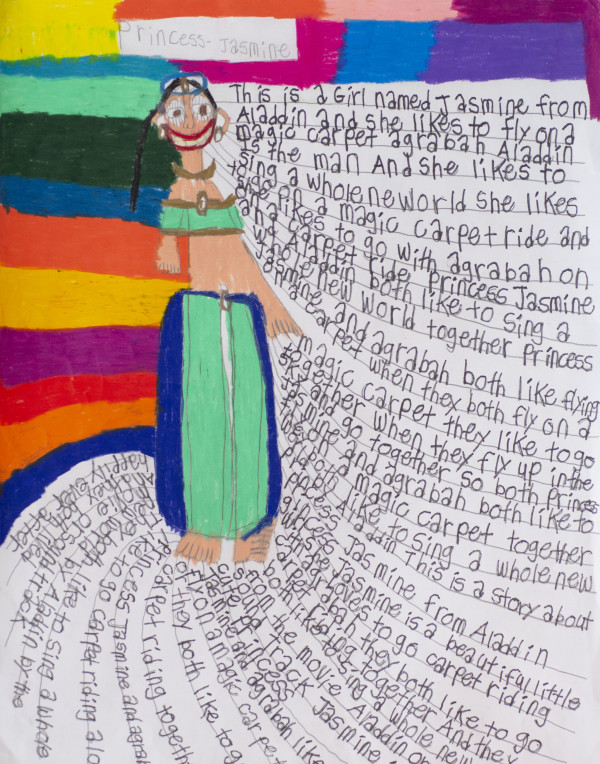 Princess-Jasmine
This is a Girl named Jasmine from
Aladdin and she likes to fly on a
magic carpet agrabah Aladdin
is the man And she likes to
sing a whole new world she likes
a magic carpet ride and
likes to go with agrabah on
carpet ride. Princess Jasmine
Aladdin both like to sing a
new world together Princess
and agrabah both like flying
carpet when they both fly on a
magic carpet they like to go
together when they fly up in the
and go together so both Princess
Jasmine and agrabah both like to
a magic carpet together
both like to sing a whole new
Aladdin This is a story about
Princess Jasmine from Aladdin
Jasmine is a beautiful little
loves to go carpet riding
agrabah they both like to go
riding together And they
both like to sing a whole new
from the movie Aladdin
sound track Jasmine
Princess
Jasmine and agrabah like
fly on a magic carpet
of they both like to g
carpet riding together
Princess Jasmine and agrab
to go carpet riding alo
both like to sing a whole
by Aladdin by the
sound track
ever after